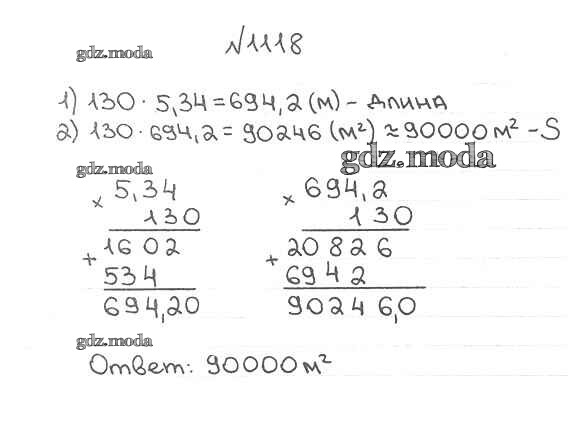 №1118
gdz.moda
1) 130 · 5,34 = 694,2 (м) - длина
2) 130 · 694,2 = 90246 (м²) ≈ 90000 м² - S
gdz.moda
gdz.moda
× 5,34
130
+ 1602
534
694,20
× 694,2
130
+ 20826
6942
90246,0
gdz.moda
Ответ: 90000 м²